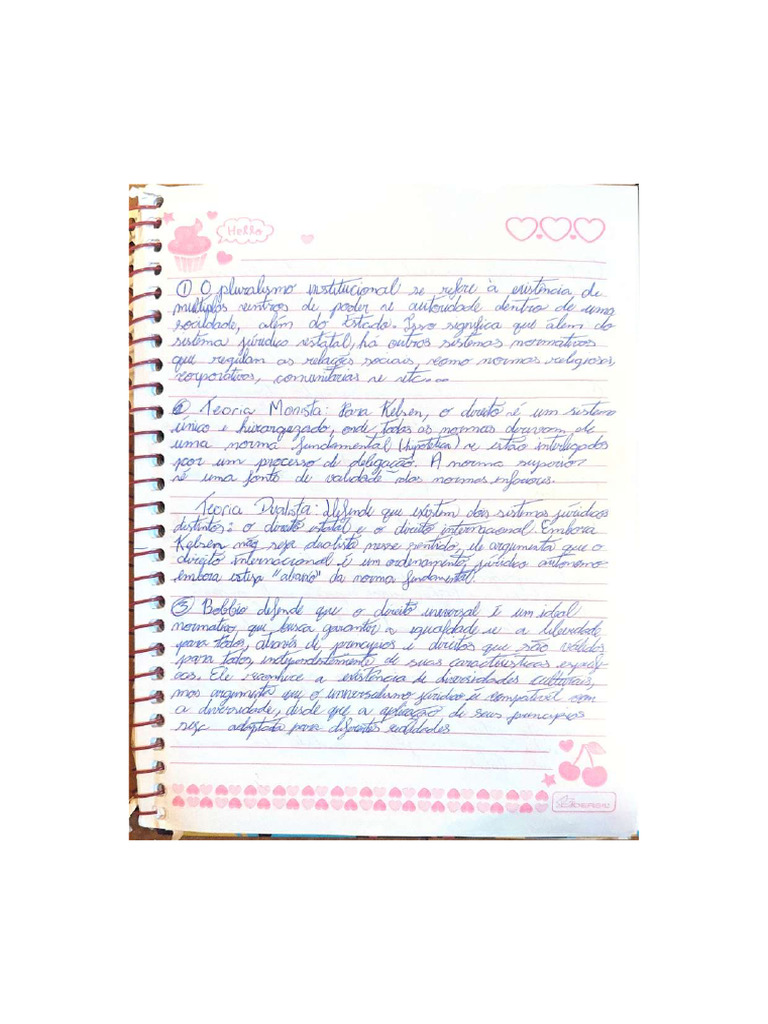 Hello
① O pluralismo institucional se refere à existência de
multiplos centros de poder e autoridade dentro de uma
sociedade, além do Estado. Isso significa que além do
sistema jurídico estatal, há outros sistemas normativos
que regulam as relações sociais, como normas religiosas,
corporativas, comunitárias e etc...
② Teoria Monista: Para Kelsen, o direito é um sistema
único e hierarquizado, onde todas as normas derivam de
uma norma fundamental (hipotética) e estão interligados
por um processo de delegação. A norma superior
é uma fonte de validade das normas inferiores.
Teoria Dualista: Defende que existem dois sistemas jurídicos
distintos: o direito estatal e o direito internacional. Embora
Kelsen não seja dualista nesse sentido, ele argumenta que o
direito internacional é um ordenamento jurídico autonomo
embora esteja "abaixo" da norma fundamental.
③ Bobbio defende que o direito universal é um ideal
normativo, que busca garantir a igualdade e a liberdade
para todos, através de princípios e direitos que são válidos
para todos, independentemente de suas características
cas. Ele reconhece a existência de diversidades culturais,
mas argumenta que o universalismo jurídico é compatível com
a diversidade, desde que a aplicação de seus princípios
seja adaptada para diferentes realidades